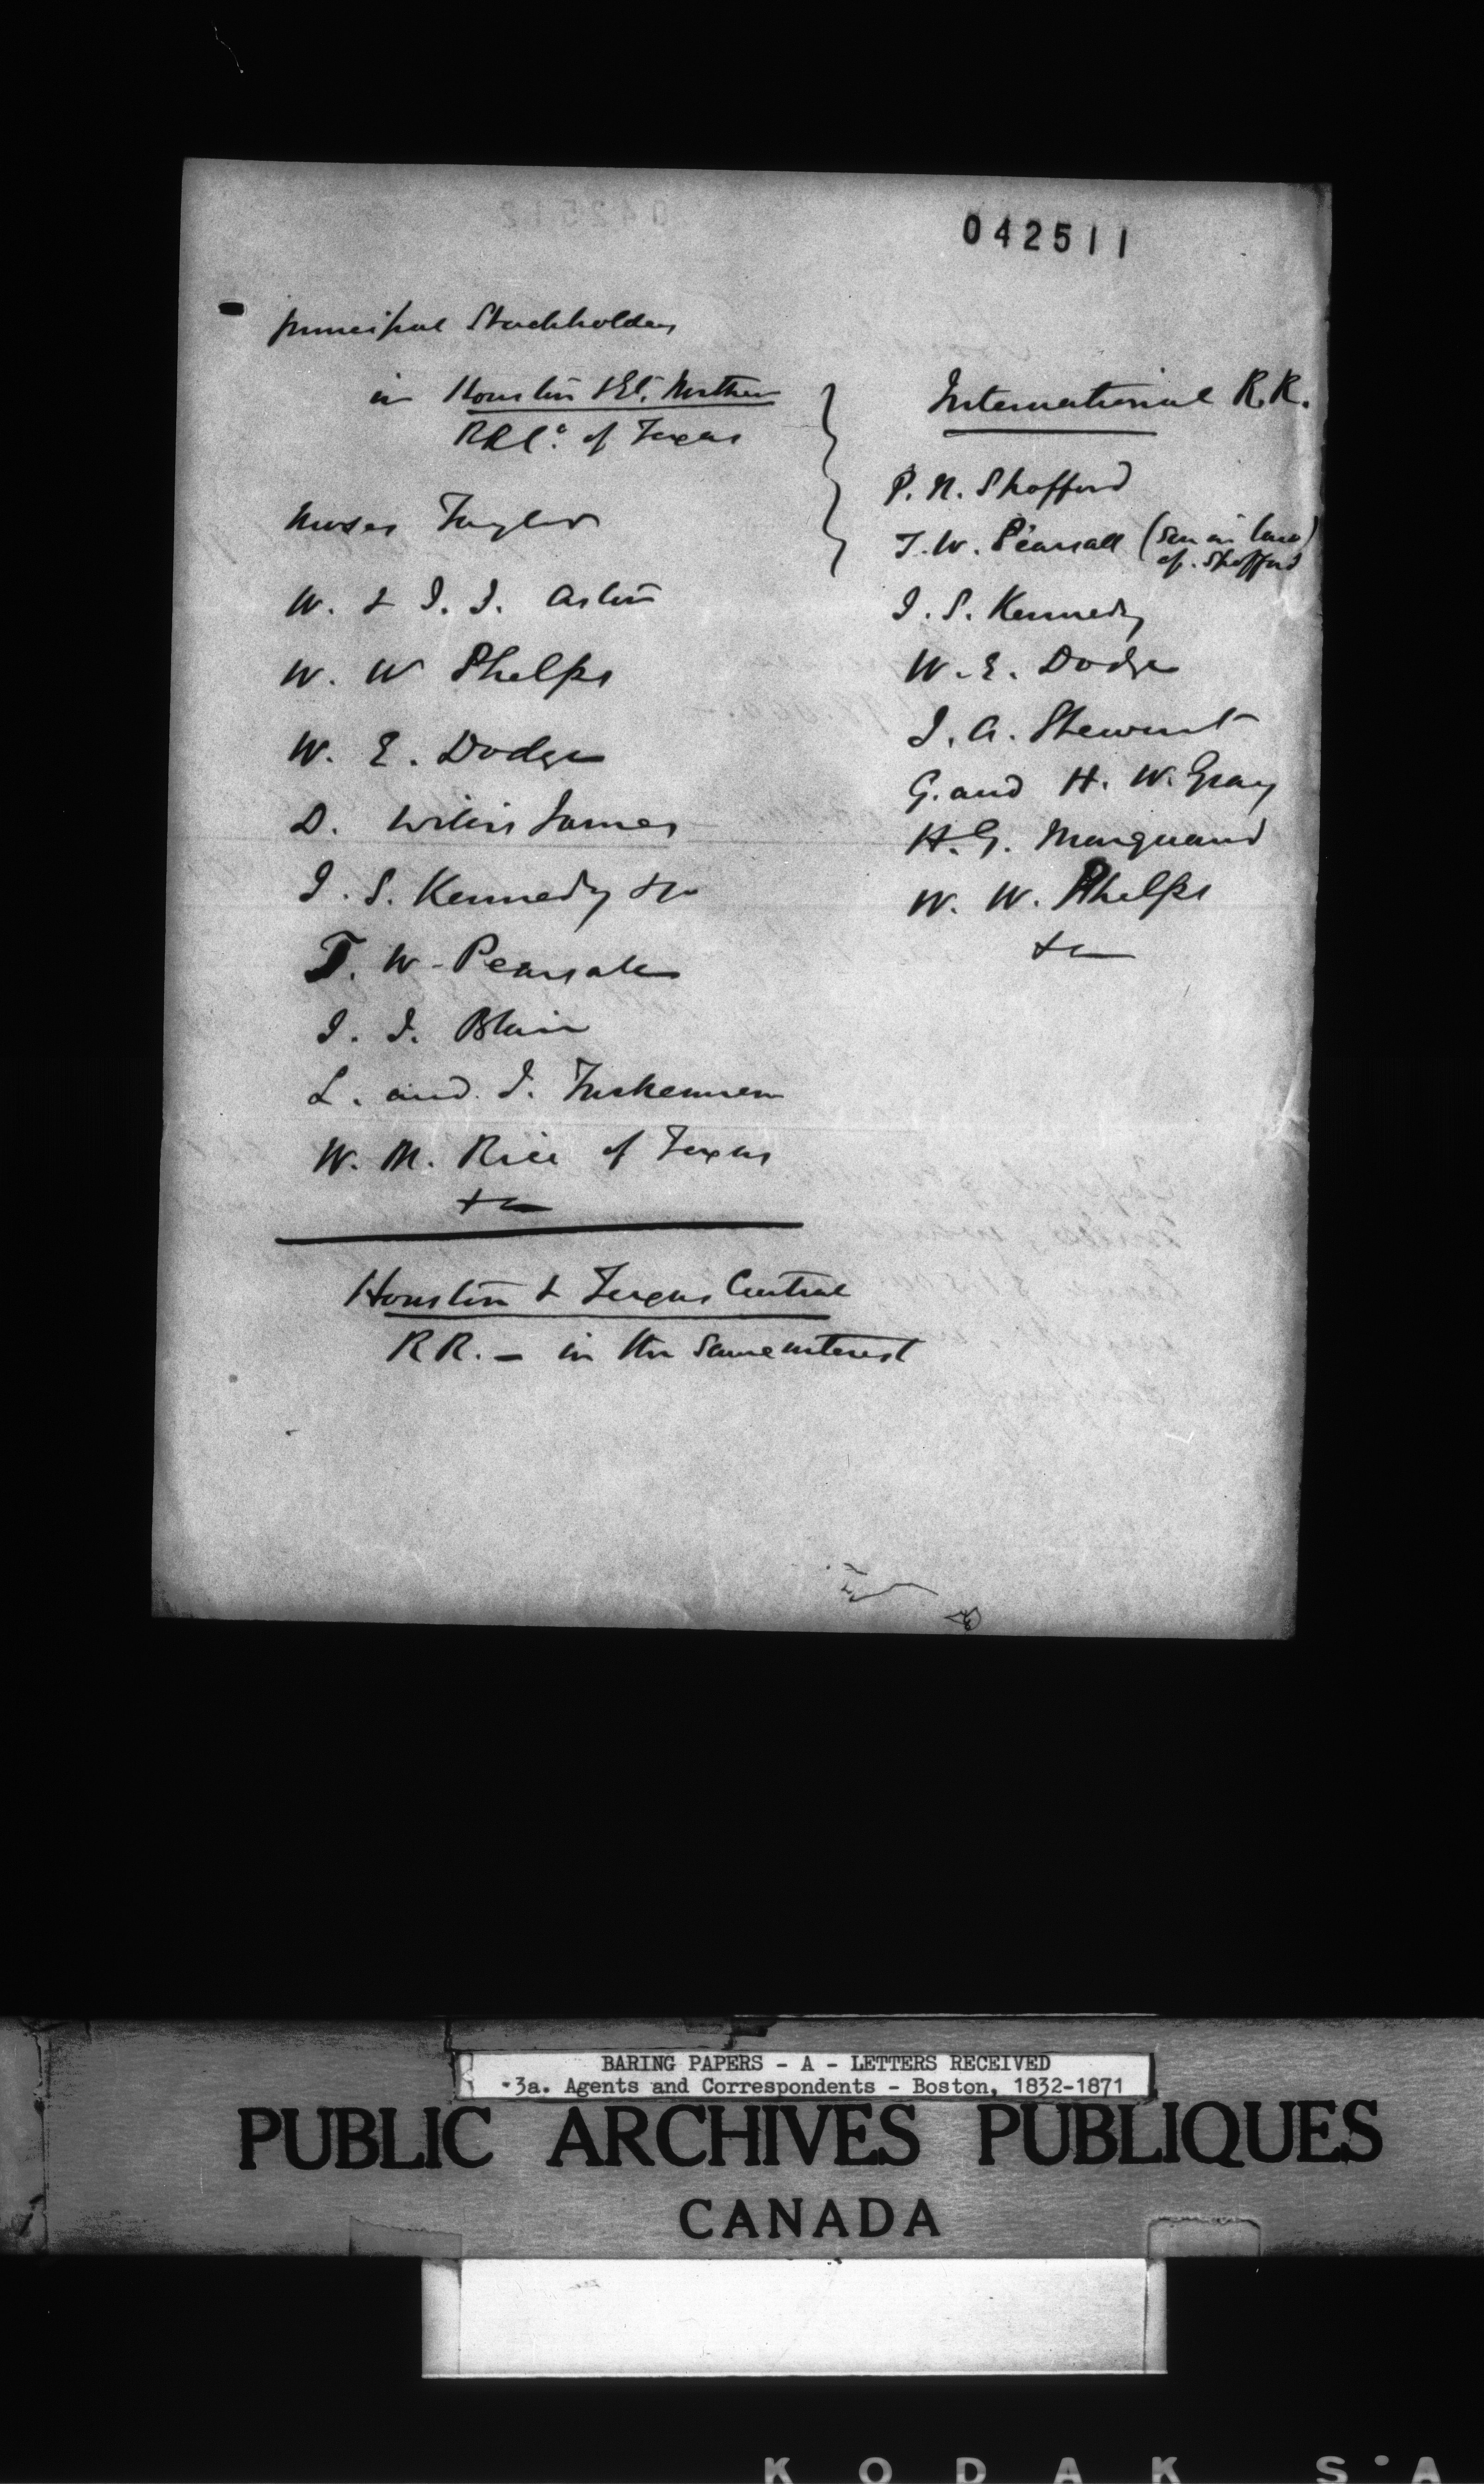 042511
principal Stockholders
in Houston & Gt. Northern
RRCo. of Texas
Moses Taylor
W. & J. J. Astor
W. W Phelps
W. E. Dodge
D. Willis James
J. S. Kennedy & Co
T. W. Pearsall
J. I. Blair
L. and J.
W. M. Rice of Texas
&c
Houston & Texas Central
RR. – in the same interest
International R.R.
P. N. Spofford
T. W. Pearsall (son in law
of Spofford)
J. S. Kennedy
W. E. Dodge
J. A. Stewart
G. and H. W. Gray
H. G. Marquand
W. W. Phelps
&c
BARING PAPERS - A - LETTERS RECEIVED
3a. Agents and Correspondents - Boston, 1832-1871
PUBLIC ARCHIVES PUBLIQUES
CANADA
KODAK S•A